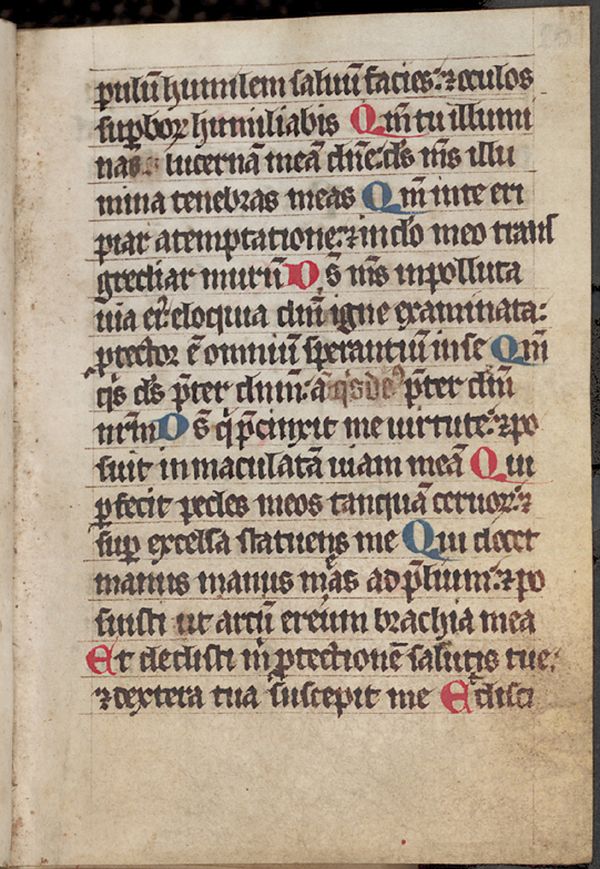 pulū humilem saluū facies: ⁊ oculos
sup̱boꝝ humiliabis Qm̄ tu illumi
nas lucernā meā dn̄e: ds̄ ms̄ illu
mina tenebras meas Qm̄ in te eri
piar a temptatione: ⁊ in dō meo trans
grediar murū Ds̄ ms̄ inpolluta
uia ei: eloquia dn̄i igne examinata:
ꝓtector ē omniū sperantiū in se Qm̄
qis ds̄ p̄ter dnm̄: ā qis de⁹ p̄ter dm̄
nr̄m Ds̄ qi p̄cinxit me uirtute: ⁊ po
suit inmaculatā uiam meā Qui
ꝑfecit pedes meos tanquā ceruoꝝ: ⁊
suꝑ excelsa statuens me Qui docet
manus manus mās ad p̄lium: ⁊ po
suisti ut arcū ereum brachia mea
Et dedisti m̄ ꝓtectionē salutis tue:
⁊ dextera tua suscepit me E disci